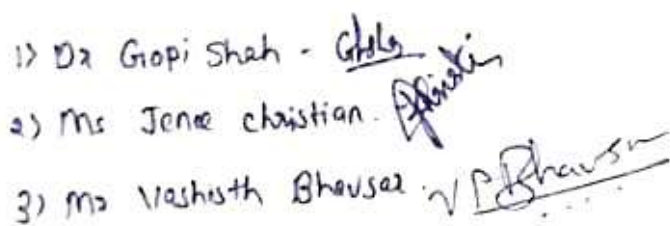 1) Dr Gopi Shah -
2) Ms Jenee christian.
3) Mr Vashisth Bhavsar. V P Bhavsar